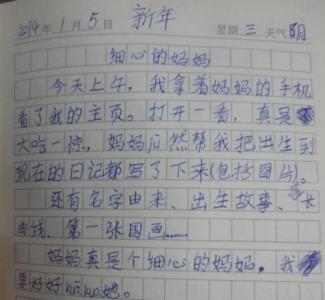 2014年1月5日 新年 星期三 天气阴
细心的妈妈
今天上午，我拿着妈妈的手机
看了我的主页。打开一看，真是
大吃一惊，妈妈jū然帮我把出生到
现在的日记都写了下来(包括图片)。
还有名字由来、出生故事、长
曲线、第一张国画……
妈妈真是个细心的妈妈，我
要好好kuākua她。